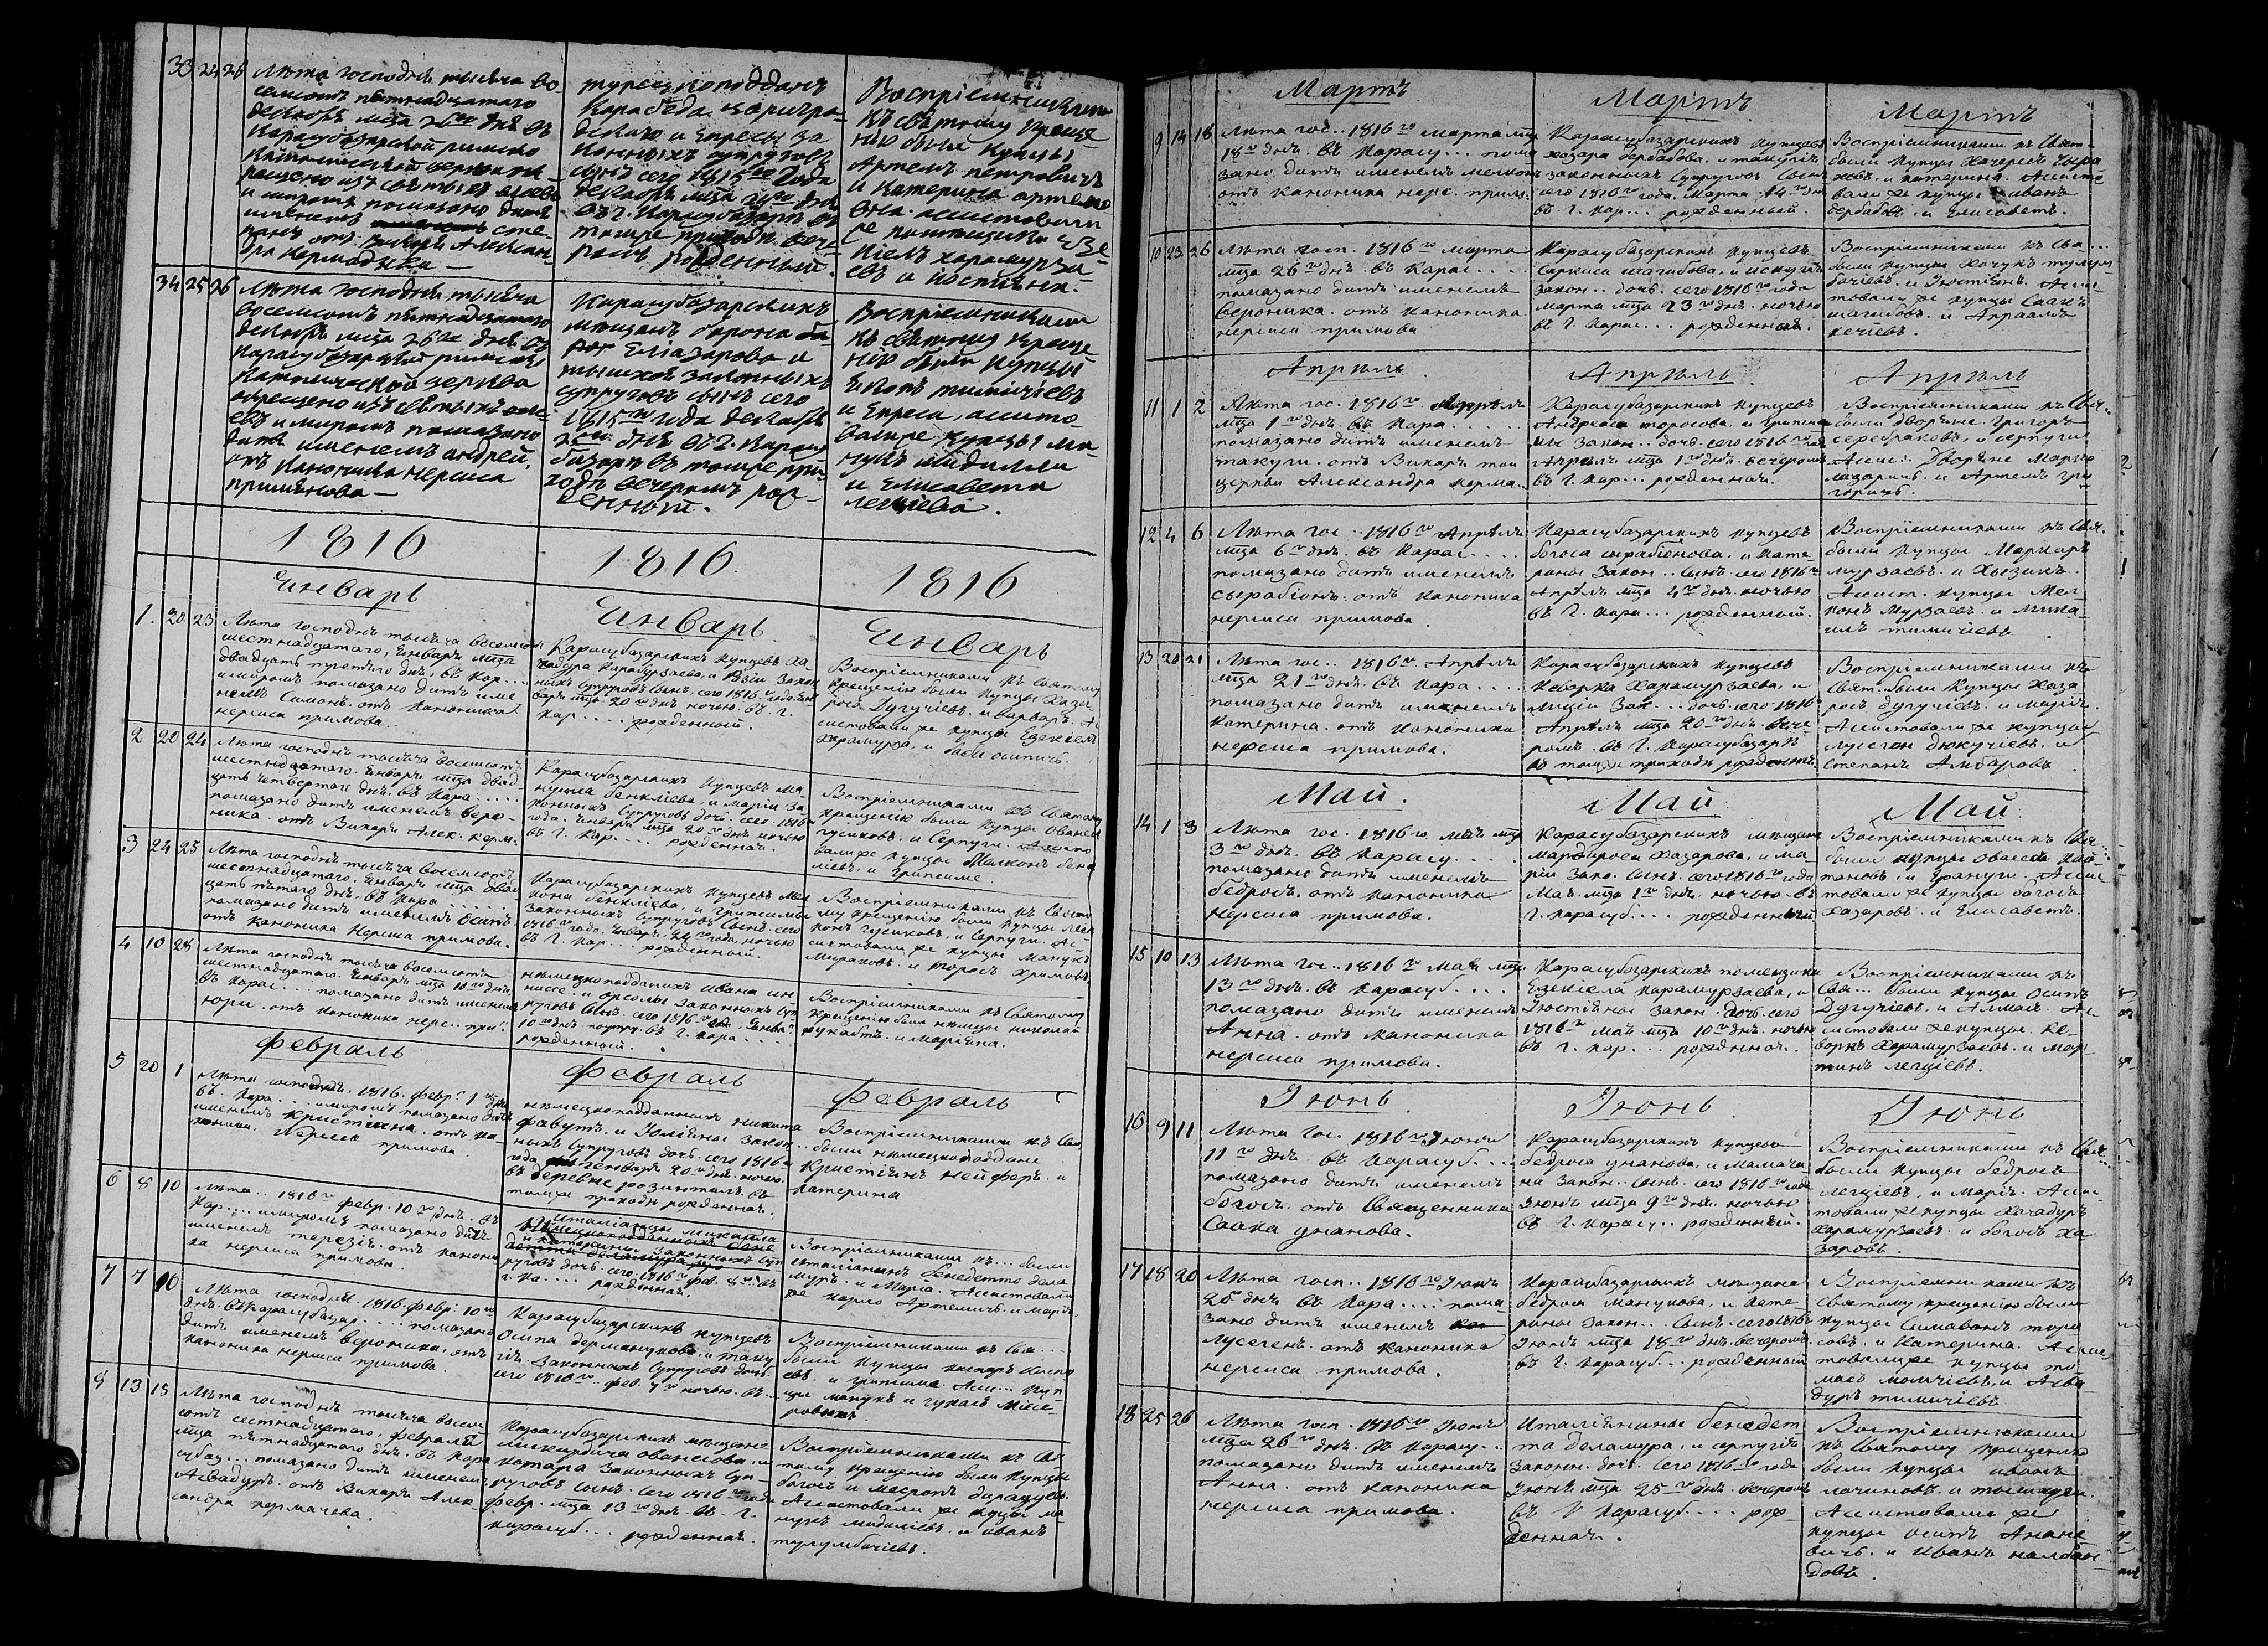 33 24 26
Лѣта господня тысяча во-
семсотъ пятнадцатаго
декабря мца 26го дня въ
Карасубазарской римско
Католической церкви
и миромъ помазано дитя
именемъ сте-
панъ отъ Викарія Алексан-
дра Кермачьева —
турецкоподдан
Карабеда
и Епресы за
конныхъ супруговъ
сынъ сего 1815го года
декабря мца 24го дня
въ г. Карасубазарѣ въ
томже приходѣ вече
ромъ рожденный.
Воспріемниками
къ святому креще
нію были купцы
Артемъ петровичъ
и Катерина артемо
вна. ассистовали
же
кіелъ карамурза
евъ и
34 25 26
Лѣта господня тысяча
восемсотъ пятнадцатаго
декабря мца 26го дня въ
Карасубазарской римско
Католической церкви
окрещено изъ святыхъ
и миромъ помазано
дитя именемъ андрей,
отъ Каноника нерсиса
примянова —
Карасубазарскихъ
мѣщанъ
Еліазарова и
законныхъ
супруговъ сынъ сего
1815го года декабря
дня въ г. Карасу
базарѣ въ томже при-
ходѣ вечеромъ рож-
денный.
Воспріемниками
къ святому креще
нію были купцы
и Епреса, ассисто
вали же купцы ма
нукъ мидиліи
и Елисавета
легчіева.
1816 1816 1816
Енварь Енварь Енварь
1. 20 23
Лѣта господня тысяча восемсотъ
шестнадцатаго, Енваря мца
двадцать третяго дня, въ Кар....
и миромъ помазано дитя име
немъ Симонъ. отъ Каноника
нерсиса примова.
Карасубазарскихъ купцевъ ха
чадура Карамурзаева, и Вѣи закон
ныхъ супруговъ сынъ. сего 1816го года Ен
варя мца 20го дня ночью. въ г.
Кар.... рожденный.
Воспріемниками къ святому
крещенію были купцы Хаза
росъ Дугучіевъ. и варваръ. Ас
систовали же купцы Езекіелъ
Карамурза, и
2 20 24
Лѣта господня тысяча восемсотъ
шестнадцатаго. Енваря мца двад
цать четвертаго дня. въ Кара.....
помазано дитя именемъ Веро-
ника. отъ Викарія Алек. Керм.
Карасубазарскихъ купцевъ ма
нуила Генкліева, и Маріи за
конныхъ Супруговъ дочь. сего 1816
года. Енваря мца 20го дня ночью
въ г. Кар.... рожденная.
Воспріемниками къ святому
крещенію были купцы Ованесъ
гусиковъ. и Серпуги. Ассисто
вали же купцы Мелконъ генк
ліевъ, и Грипсиме.
3 24 25
Лѣта господня тысяча восемсотъ
шестнадцатаго, Енваря мца двад
цать пятаго дня, въ Кара.....
помазано дитя именемъ Осипъ
отъ Каноника Нерсиса примова.
Карасубазарскихъ купцевъ Мел
кона Генкліева, и Грипсимы
Законныхъ Супруговъ сынъ. сего
1816го года, Енваря, 24го года, ночью
въ г. Кар... рожденный.
Воспріемниками къ Свято
му Крещенію были Купцы Мел
конъ Гусиковъ. и Серпуги. Ас-
систовали же купцы Манукъ
Мираковъ. и торосъ Хримовъ.
4 10 28
Лѣта господня тысяча восемсотъ
шестнадцатаго. Енваря мца 10го дня
въ Карас... помазано дитя именемъ
юри. отъ каноника нерс.. прим.
нѣмецкоподданыхъ Ивана ин
ниссе. и орсолы Законныхъ суп
руговъ сынъ. сего 1816го года. Енва.
10го дня поутру. въ г. Кара....
рожденный.
Воспріемниками къ святому
крещенію были нѣмцы николай
и маріяна.
Февраль Февраль Февраль
5 20 1
Лѣта господня. 1816. февр. 1го дня
въ Кара... и миромъ помазано дитя
именемъ Кристина. отъ ка
ноника. Нерсиса примова.
нѣмецкоподданыхъ никита
фабутъ. и Юліяны закон
ныхъ Супруговъ дочь. сего 1816го
года генваря 20го дня. ночью.
въ деревне розинталъ. въ
томже приходѣ рожденная.
Воспріемниками къ Свя.
были нѣмецкоподдане
Кристіянъ нейферъ. и
катерина
6 8 10
Лѣта... 1816го февр. 10го дня. въ
Кар.... и миромъ помазано дитя
именемъ терезія. отъ канони
ка нерсиса примова.
италіанцы
и катерины законныхъ суп
руговъ дочь. сего 1816го фев. 8го въ
г. Ка.... рожденная.
Воспріемниками къ... были
италіанецъ бенедетто дела
муръ. и Марія. Ассистовали
же карло Артемичъ. и марія.
7 7 10
Лѣта господня. 1816. февр. 10го
дня. въ Карасубазар.... помазано
дитя именемъ вероника, отъ
каноника нерсиса примова.
Карасубазарскихъ купцевъ
Осипа дерманукова. и таку
гіи. законныхъ Супруговъ дочь.
сего 1816го. фев. 7го ночью. въ...
Воспріемниками къ свя...
были купцы каспаръ
евъ. и грипсима. Асси... куп
цы манукъ и гукасъ
8 13 15
Лѣта господня тысяча восем
сотъ шестнадцатаго, февраля
мца пятнадцатаго дня, въ Кара
субаз... помазано дитя именемъ
Асвадуръ. отъ Викарія Алек
сандра кермачева.
Карасубазарскихъ мѣщане
микирдича ованесова, и
натара законныхъ суп-
руговъ сынъ. сего 1816го года
февр. мца 13го дня. въ г.
карасуб... рожденная.
Воспріемниками къ свя
тому крещенію были купцы
богосъ и месропъ
Ассистовали же купцы ма-
нукъ мидиліевъ. и иванъ
тулумбачіевъ.
Мартъ Мартъ Мартъ
9 14 18
Лѣта гос.. 1816го марта мца
18го дня. въ Карасу... пома
зано дитя именемъ мелконъ
отъ каноника нерс. прим.
Карасубазарскихъ купцевъ
хазара бербабова. и такугіи
законныхъ супруговъ сынъ
сего 1816го года Марта 14го дня
въ г. Кар... рожденный.
Воспріемниками къ свят-
были купцы Качересъ
и катерина. Ассисто
вали же купцы иванъ
бербабовъ. и Елисаветъ.
10 23 26
Лѣта госп. 1816го марта
мца 26го дня. въ Карас....
помазано дитя именемъ
вероника. отъ каноника
нерсиса примова
Карасубазарскихъ купцевъ
Саркиса шагибова. и искуги
закон.. дочь. сего 1816го года
марта мца 23го дня. ночью
въ г. Карас.... рожденная.
Воспріемниками къ Свя...
были купцы Хачукъ тулум
бачіевъ. и Юстіянъ. Асси-
товали же купцы Саакъ
шагибовъ. и Апраамъ
кечіевъ.
Апрѣль Апрѣль Апрѣль
11 1 2
Лѣта гос. 1816го. Апрѣля
мца 1го дня. въ Кара.....
помазано дитя именемъ
такуги. отъ Викарія той
церкви Александра керма.
Карасубазарскихъ купцевъ
Андреаса торосова. и Грипси
мы закон.. дочь. сего 1816го год
Апрѣля мца 1го дня. вечеромъ
въ г. Кар... рожденная.
Воспріемниками къ Свя.
были дворяне. Григоръ
серебряковъ. и серпуги
Ассис. Дворяне Марко
лазаричъ. и Артемъ гри
горичъ.
12 4 6
Лѣта гос.. 1816го Апрѣля
мца 6го дня. въ Карас....
помазано дитя именемъ
сырабіонъ. отъ каноника
нерсиса примова
Карасубазарскихъ купцевъ
богоса сырабіонова. и кате
рины закон.. сынъ. сего 1816го
Апрѣля мца 4го дня. ночью
въ г. Кара... рожденный.
Воспріемниками къ Свя.
были купцы Маркаръ
мурзаевъ. и Хызикъ.
Ассист. купцы Мел
конъ Мурзаевъ. и мика
илъ тимичіевъ.
13 20 21
Лѣта гос.. 1816го. Апрѣля
мца 21го дня. въ Кара....
помазано дитя именемъ
катерина. отъ каноника
нерсиса примова.
Карасубазарскихъ купцевъ
Кеворка Карамурзаева, и
Зак... дочь. сего 1816
Апрѣля мца 20го дня. вече
ромъ. въ г. Карасубазарѣ
въ томже приходѣ рожденна
Воспріемниками къ
Свят. были Купцы Хаза
росъ дугучіевъ. и марія.
Ассистовали же купцы
мусегон дюкучіевъ. и
Степанъ Амбаровъ
Май. Май. Май.
14 1 3
Лѣта гос. 1816го. Мая мца
3го дня. въ Карасу....
помазано дитя именемъ
бедросъ. отъ каноника
нерсиса примова.
Карасубазарскихъ мѣщане
мардироса хазарова, и ма-
ріи зако. сынъ. сего 1816го года
Мая. мца 1го дня. ночью. въ
г. Карасуб.... рожденный
Воспріемниками къ Свя..
были купцы
и Грануги. Ассис
товали же купцы богосъ
хазаровъ. и Елисаветъ.
15 10 13
Лѣта гос.. 1816го Мая мца
13го дня. въ Карасуб....
помазано дитя именемъ
Анна. отъ каноника
нерсиса примова.
Карасубазарскихъ помещики
Езекіела карамурзаева, и
Юстіяны закон. дочь. сего
1816го мая мца 10го дня. ночью
въ г. кар.... рожденная.
Воспріемниками къ
Свя... были купцы Осипъ
Дугучіевъ, и Алмая. Ас
систовали же купцы. Ке-
воркъ Карамурзаевъ. и Мар
тинъ легчіевъ.
Іюнь Іюнь Іюнь
16 9 11
Лѣта гос. 1816го Іюня
11го дня. въ Карасуб...
помазано дитя именемъ
богосъ. отъ Священника
Саака унанова.
Карасубазарскихъ купцевъ
бедроса унанова, и мамача
на закон.. сынъ. сего 1816го года
Іюня мца 9го дня. ночью
въ г. Карасу.. рожденный.
Воспріемниками къ Свя..
были купцы бедросъ
легчіевъ, и марія. Асси
товали же купцы Хачадуръ
карамурзаевъ. и богосъ ха
заровъ.
17 18 20
Лѣта госп.. 1816го Іюня
20го дня въ Кара.... пома
зано дитя именемъ
Мусегенъ. отъ каноника
нерсиса примова.
Карасубазарскихъ мѣщане
бедроса манукова, и кате
рины закон.. сынъ. сего 1816го
Іюня мца 18го дня. вечеромъ
въ г. Карасуб... рожденный
Воспріемниками къ
святому крещенію были
купцы Симаванъ торо
совъ. и катерина. Ассис
товали же купцы то
масъ момчіевъ. и Асва
дуръ тимичіевъ.
18 25 26
Лѣта госп. 1816го Іюня
мца 26го дня. въ Карасу..
помазано дитя именемъ
Анна. отъ каноника
нерсиса примова.
Италіянины бенедет
та деламура, и серпугія
законн. дочь. сего 1816го года
Іюня мца 25го дня. вечеромъ
въ г карасуб.... рож
денная.
Воспріемниками
къ святому крещенію
были купцы иванъ
Ассистовали же
купцы осипъ Анане
вичъ. и иванъ налбан
довъ.